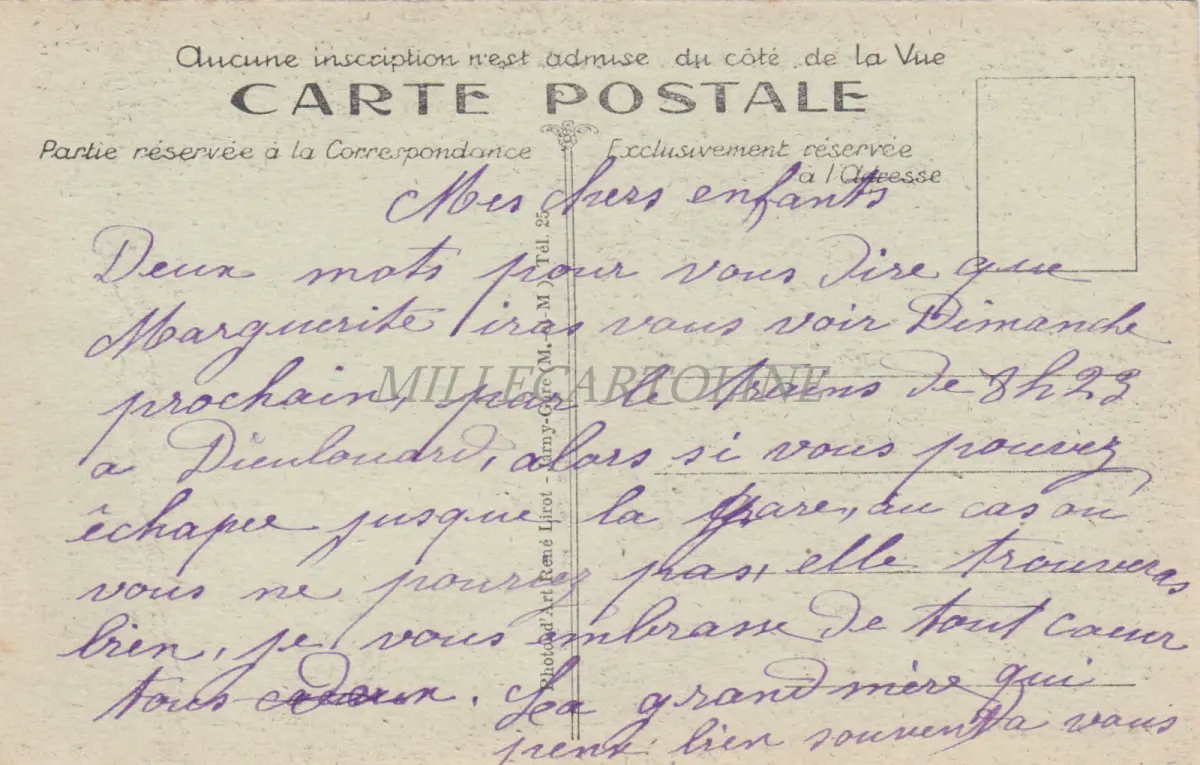 Aucune inscription n'est admise du côté de la Vue
CARTE POSTALE
Partie réservée à la Correspondance
Exclusivement réservée
à l'Adresse
Mes chers enfants
Deux mots pour vous dire que
Marguerite iras vous voir Dimanche
prochain, par le trains de 8h23
a Dieulouard, alors si vous pouvez
êchapee jusque la gare, au cas où
vous ne pourrez pas, elle trouveras
bien, je vous embrasse de tout coeur
tous deux. La grandmère qui
pense bien souvent a vous
Photo d'Art René Lirot - Jarny-Gare (M.-&-M.) Tél. 25
MILLECARTOLINE